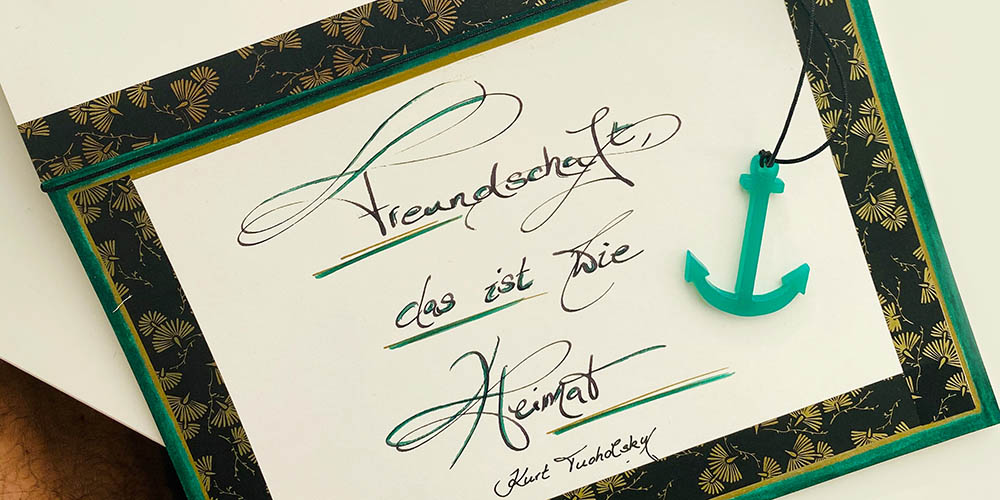 Freundschaft,
das ist wie
Heimat
Kurt Tucholsky